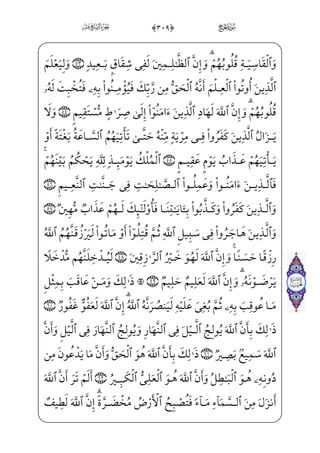 سُورَةُ الحَجِّ
﴿٣٠٩﴾
وَالْقَاسِيَةِ قُلُوبُهُمْ ۗ وَإِنَّ الظَّٰلِمِينَ لَفِى شِقَاقٍۭ بَعِيدٍ ۝ وَلِيَعْلَمَ
الَّذِينَ أُوتُوا۟ الْعِلْمَ أَنَّهُ الْحَقُّ مِن رَّبِّكَ فَيُؤْمِنُوا۟ بِهِۦ فَتُخْبِتَ لَهُۥ
قُلُوبُهُمْ ۗ وَإِنَّ اللَّهَ لَهَادِ الَّذِينَ ءَامَنُوٓا۟ إِلَىٰ صِرَٰطٍ مُّسْتَقِيمٍ ۝ وَلَا
يَزَالُ الَّذِينَ كَفَرُوا۟ فِى مِرْيَةٍ مِّنْهُ حَتَّىٰ تَأْتِيَهُمُ السَّاعَةُ بَغْتَةً أَوْ
يَأْتِيَهُمْ عَذَابُ يَوْمٍ عَقِيمٍ ۝ الْمُلْكُ يَوْمَئِذٍ لِّلَّهِ يَحْكُمُ بَيْنَهُمْ ۚ
فَالَّذِينَ ءَامَنُوا۟ وَعَمِلُوا۟ الصَّٰلِحَٰتِ فِى جَنَّٰتِ النَّعِيمِ ۝
وَالَّذِينَ كَفَرُوا۟ وَكَذَّبُوا۟ بِـَٔايَٰتِنَا فَأُو۟لَٰٓئِكَ لَهُمْ عَذَابٌ مُّهِينٌ ۝
وَالَّذِينَ هَاجَرُوا۟ فِى سَبِيلِ اللَّهِ ثُمَّ قُتِلُوٓا۟ أَوْ مَاتُوا۟ لَيَرْزُقَنَّهُمُ اللَّهُ
رِزْقًا حَسَنًا ۚ وَإِنَّ اللَّهَ لَهُوَ خَيْرُ الرَّٰزِقِينَ ۝ لَيُدْخِلَنَّهُم مُّدْخَلًا
يَرْضَوْنَهُۥ ۗ وَإِنَّ اللَّهَ لَعَلِيمٌ حَلِيمٌ ۝ ۞ ذَٰلِكَ وَمَنْ عَاقَبَ بِمِثْلِ
مَا عُوقِبَ بِهِۦ ثُمَّ بُغِىَ عَلَيْهِ لَيَنصُرَنَّهُ اللَّهُ ۗ إِنَّ اللَّهَ لَعَفُوٌّ غَفُورٌ ۝
ذَٰلِكَ بِأَنَّ اللَّهَ يُولِجُ الَّيْلَ فِى النَّهَارِ وَيُولِجُ النَّهَارَ فِى الَّيْلِ وَأَنَّ
اللَّهَ سَمِيعٌۢ بَصِيرٌ ۝ ذَٰلِكَ بِأَنَّ اللَّهَ هُوَ الْحَقُّ وَأَنَّ مَا يَدْعُونَ مِن
دُونِهِۦ هُوَ الْبَٰطِلُ وَأَنَّ اللَّهَ هُوَ الْعَلِىُّ الْكَبِيرُ ۝ أَلَمْ تَرَ أَنَّ اللَّهَ
أَنزَلَ مِنَ السَّمَآءِ مَآءً فَتُصْبِحُ الْأَرْضُ مُخْضَرَّةً ۗ إِنَّ اللَّهَ لَطِيفٌ